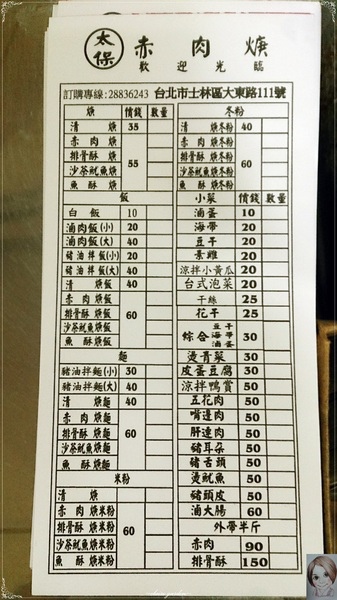 太保 赤肉焿
歡迎光臨
訂購專線:28836243 台北市士林區大東路111號
焿 價錢 數量
清焿 35
赤肉焿
排骨酥焿 55
沙茶魷魚焿
魚酥焿
飯
白飯 10
滷肉飯(小) 20
滷肉飯(大) 40
豬油拌飯(小) 20
豬油拌飯(大) 40
清焿飯 40
赤肉焿飯
排骨酥焿飯 60
沙茶魷魚焿飯
魚酥焿飯
麵
豬油拌麵(小) 30
豬油拌麵(大) 40
清焿麵 40
赤肉焿麵
排骨酥焿麵 60
沙茶魷魚焿麵
魚酥焿麵
米粉
清焿
赤肉焿米粉
排骨酥焿米粉 60
沙茶魷魚焿米粉
魚酥焿米粉
冬粉
清焿冬粉 40
赤肉焿冬粉
排骨酥焿冬粉 60
沙茶魷魚焿冬粉
魚酥焿冬粉
小菜 價錢 數量
滷蛋 10
海帶 20
豆干 20
素雞 20
涼拌小黃瓜 20
台式泡菜 20
干絲 25
花干 25
綜合 豆干 海帶 滷蛋 30
燙青菜 30
皮蛋豆腐 30
涼拌鴨賞 50
五花肉 50
嘴邊肉 50
肝連肉 50
豬耳朵 50
豬舌頭 50
燙魷魚 50
豬頭皮 50
滷大腸 60
外帶半斤
赤肉 90
排骨酥 150